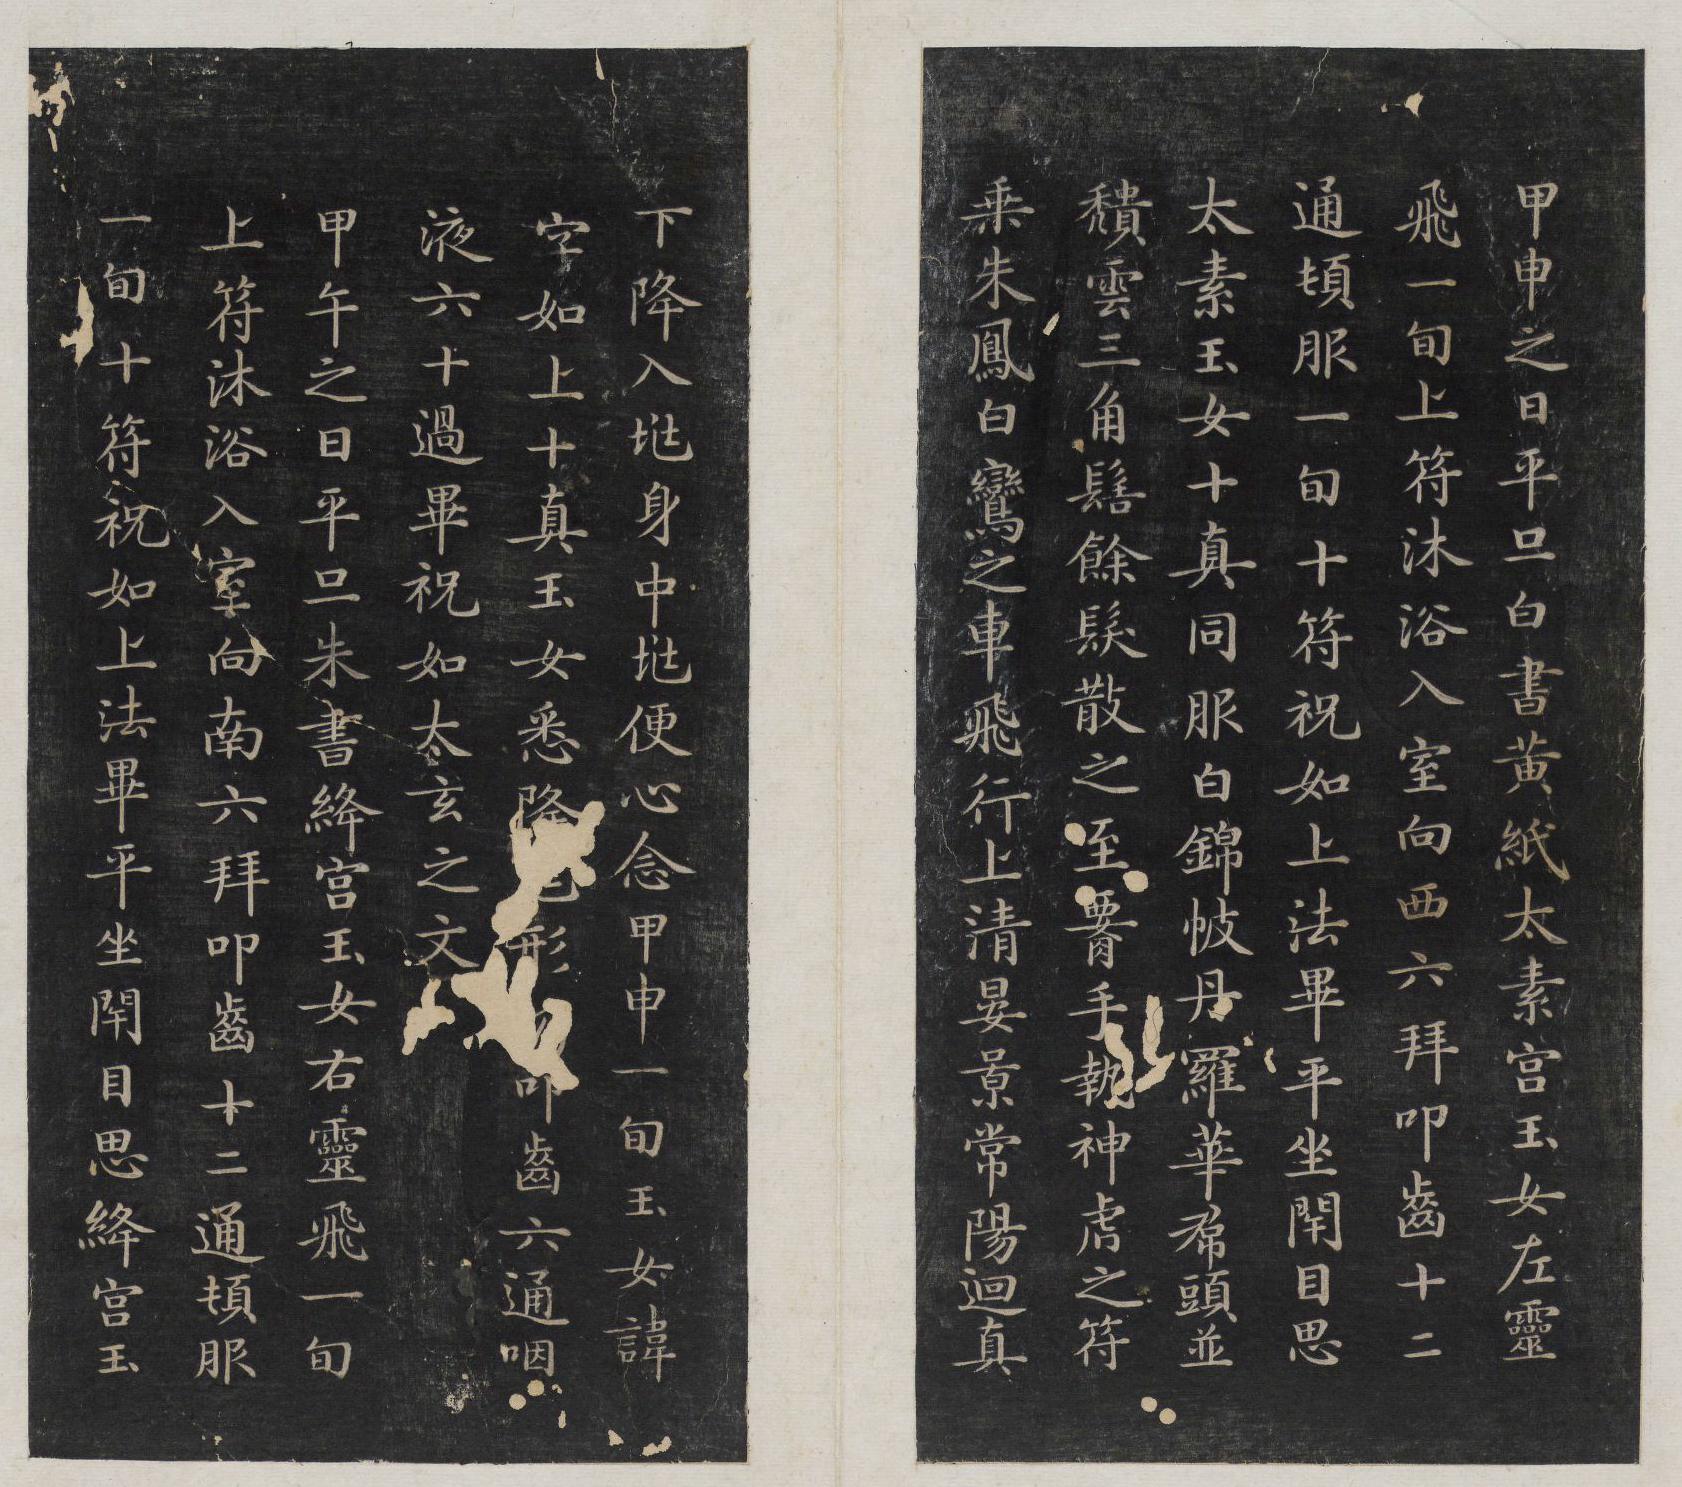 甲申之日平旦白書黃紙太素宮玉女左靈
飛一旬上符沐浴入室向西六拜叩齒十二
通頓服一旬十符祝如上法畢平坐閇目思
太素玉女十真同服白錦帔丹羅華帬頭並
穨雲三角髻餘髮散之至腰手執神虎之符
乗朱鳳白鸞之車飛行上清晏景常陽迴真
下降入𡉏身中𡉏便心念甲申一旬玉女諱
字如上十真玉女悉降形叩齒六通咽
液六十過畢祝如太玄之文
甲午之日平旦朱書絳宮玉女右靈飛一旬
上符沐浴入室向南六拜叩齒十二通頓服
一旬十符祝如上法畢平坐閇目思絳宮玉